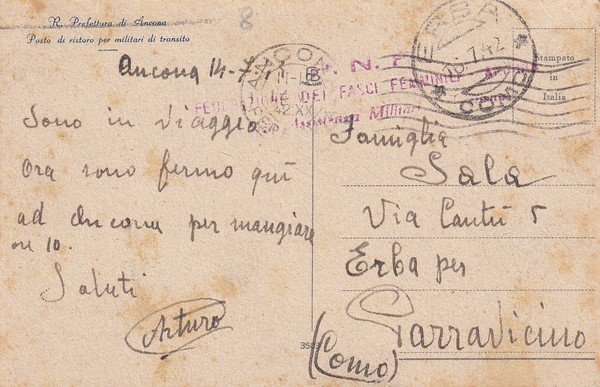 R. Prefettura di Ancona
Posto di ristoro per militari di transito
8
Ancona 14-7-42
Sono in viaggio
Ora sono fermo qui
ad Ancona per mangiare
ore 10.
Saluti
Arturo
P. N. F.
FEDERAZIONE DEI FASCI FEMMINILI
Assistenza Militari
ERBA
15.7.42
COMO
Stampato
in
Italia
Famiglia
Sala
Via Cantù 5
Erba per
Parravicino
(Como)